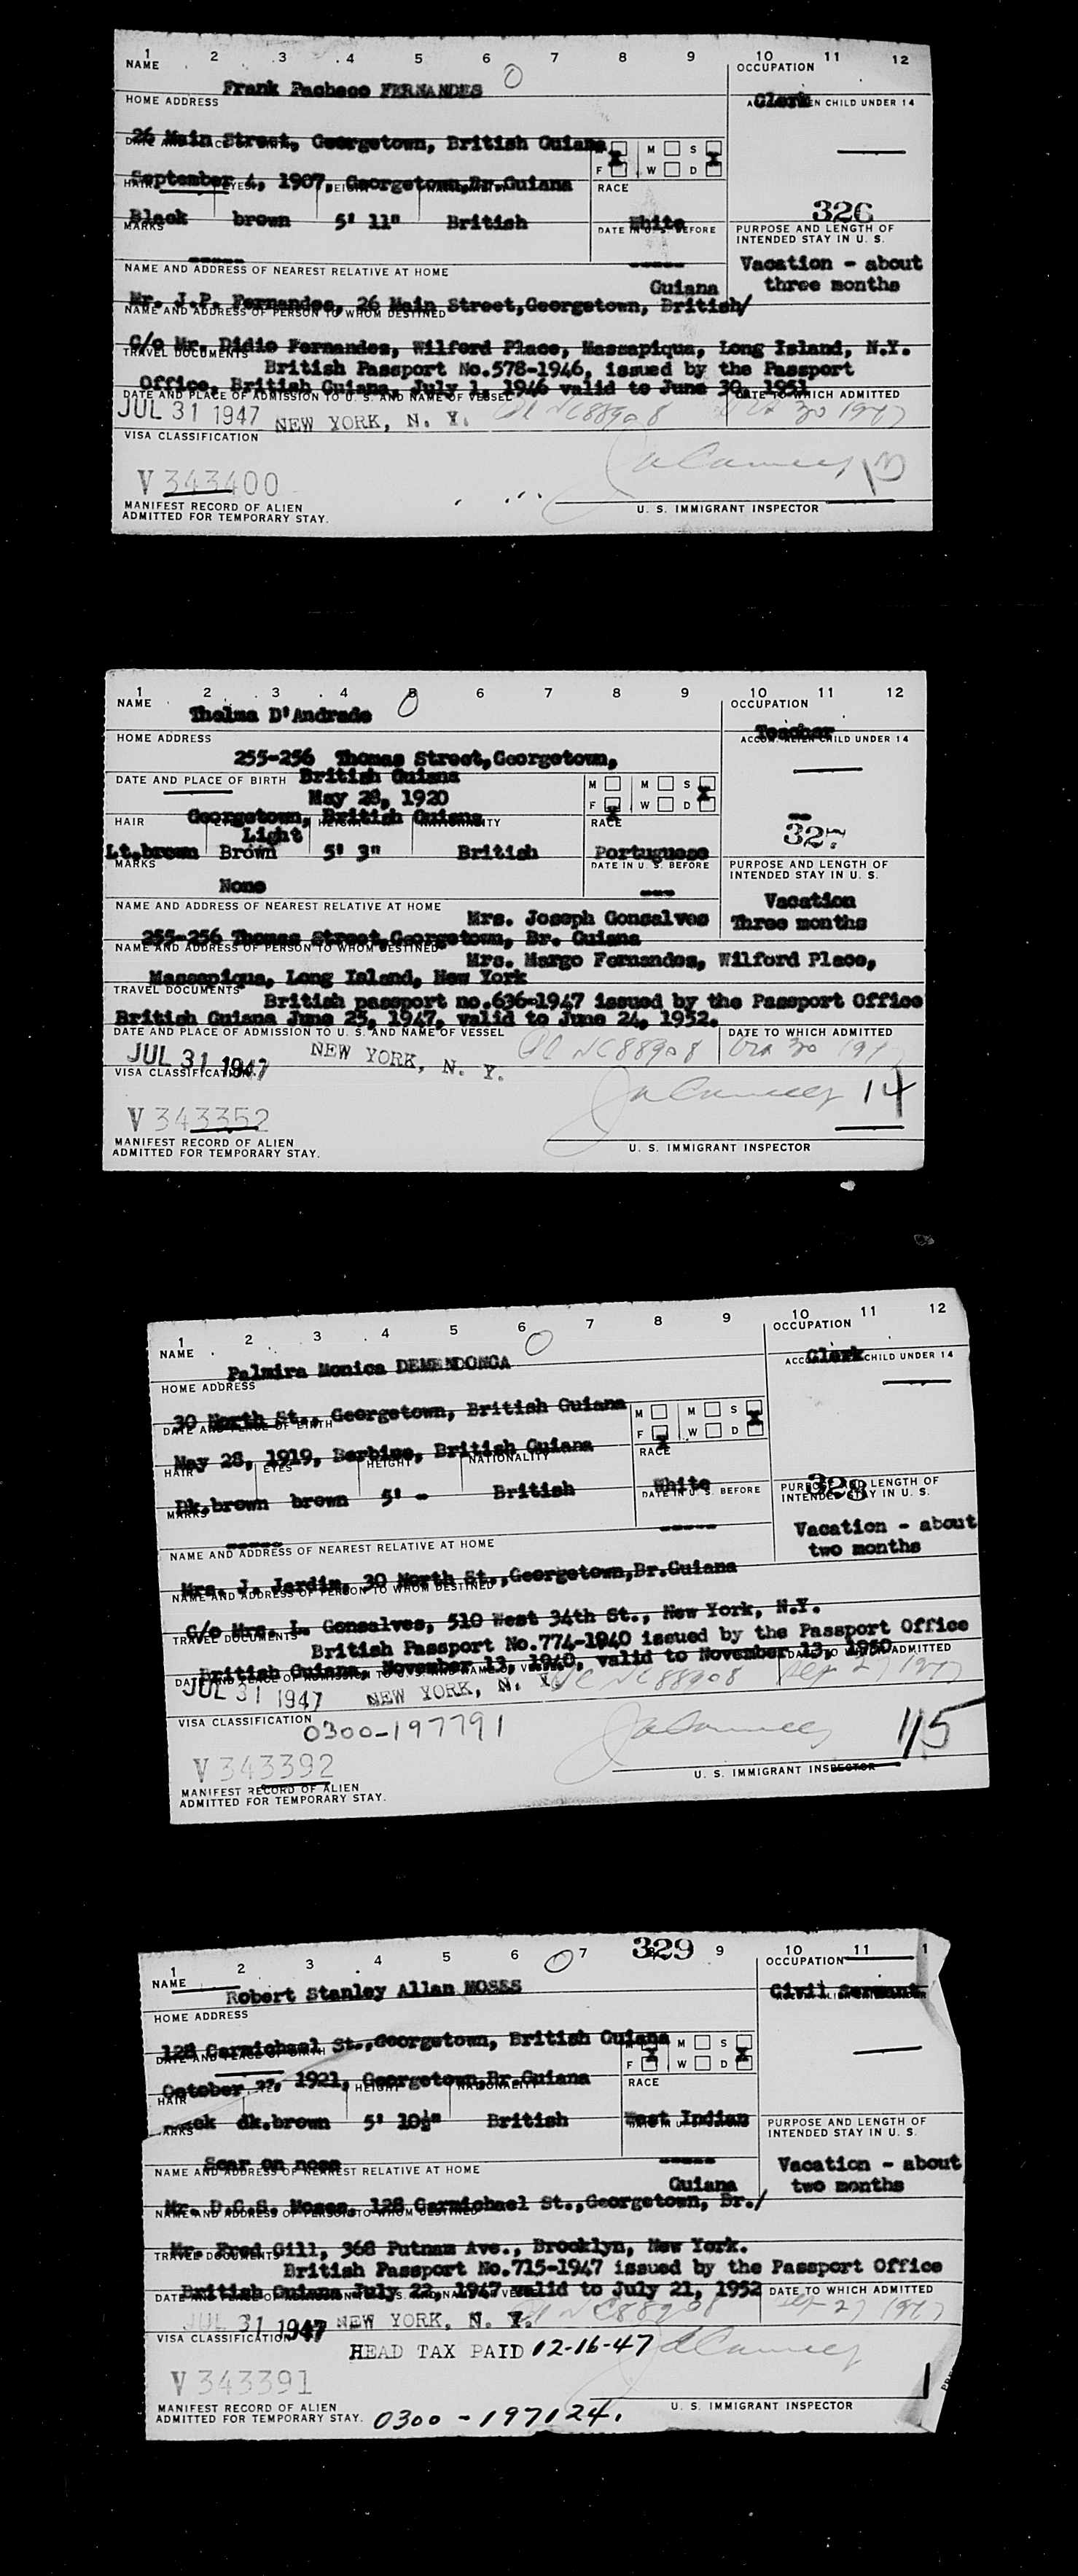 1 2 3 4 5 6 7 8 9 10 11 12
NAME OCCUPATION
Frank Pacheco FERNANDES Clerk
HOME ADDRESS CHILD UNDER 14
26 Main Street, Georgetown, British Guiana
M S
F W D
September 4, 1907, Georgetown, Br. Guiana
RACE
Black brown 5' 11" British White
326
MARKS
DATE IN U. S. BEFORE
PURPOSE AND LENGTH OF INTENDED STAY IN U. S.
NAME AND ADDRESS OF NEAREST RELATIVE AT HOME
Vacation - about three months
Guiana
Mr. J.P. Fernandes, 26 Main Street, Georgetown, British/
NAME AND ADDRESS OF PERSON TO WHOM DESTINED
C/o Mr. Didio Fernandes, Wilford Place, Massapiqua, Long Island, N.Y.
TRAVEL DOCUMENTS
British Passport No.578-1946, issued by the Passport
Office, British Guiana, July 1, 1946 valid to June 30, 1951
DATE AND PLACE OF ADMISSION TO U. S. AND NAME OF VESSEL DATE TO WHICH ADMITTED
JUL 31 1947 NEW YORK, N. Y. NC88908 Oct 30 1947
VISA CLASSIFICATION
V 343400 13
MANIFEST RECORD OF ALIEN
ADMITTED FOR TEMPORARY STAY.
U. S. IMMIGRANT INSPECTOR
1 2 3 4 5 6 7 8 9 10 11 12
NAME OCCUPATION
Thelma D'Andrade Teacher
HOME ADDRESS CHILD UNDER 14
255-256 Thomas Street, Georgetown,
DATE AND PLACE OF BIRTH British Guiana
M M S
May 28, 1920
F W D
Georgetown, British Guiana
HAIR RACE
327
Light
Lt.brown Brown 5' 3" British Portuguese
MARKS DATE IN U. S. BEFORE
PURPOSE AND LENGTH OF INTENDED STAY IN U. S.
None
NAME AND ADDRESS OF NEAREST RELATIVE AT HOME
Vacation
Three months
Mrs. Joseph Gonsalves
255-256 Thomas Street, Georgetown, Br. Guiana
NAME AND ADDRESS OF PERSON TO WHOM DESTINED
Mrs. Margo Fernandes, Wilford Place,
Massapiqua, Long Island, New York
TRAVEL DOCUMENTS
British passport no.636-1947 issued by the Passport Office
British Guiana June 25, 1947, valid to June 24, 1952.
DATE AND PLACE OF ADMISSION TO U. S. AND NAME OF VESSEL DATE TO WHICH ADMITTED
JUL 31 1947 NEW YORK, N. Y. NC88908 Oct 30 1947
VISA CLASSIFICATION
V 343352 14
MANIFEST RECORD OF ALIEN
ADMITTED FOR TEMPORARY STAY.
U. S. IMMIGRANT INSPECTOR
1 2 3 4 5 6 7 8 9 10 11 12
NAME OCCUPATION
Palmira Monica DEMENDONCA Clerk
HOME ADDRESS CHILD UNDER 14
30 North St., Georgetown, British Guiana
M M S
F W D
May 28, 1919, Berbice, British Guiana
HAIR EYES HEIGHT NATIONALITY RACE
Dk.brown brown 5' - British White
MARKS DATE IN U. S. BEFORE
328
PURPOSE AND LENGTH OF INTENDED STAY IN U. S.
NAME AND ADDRESS OF NEAREST RELATIVE AT HOME
Vacation - about two months
Mrs. J. Jardim, 30 North St., Georgetown, Br.Guiana
NAME AND ADDRESS OF PERSON TO WHOM DESTINED
C/o Mrs. L. Gonsalves, 510 West 34th St., New York, N.Y.
TRAVEL DOCUMENTS
British Passport No.774-1940 issued by the Passport Office
British Guiana, November 13, 1940, valid to November 13, 1950
ADMITTED
JUL 31 1947 NEW YORK, N. Y. NC88908 Sep 27 1947
VISA CLASSIFICATION
0300-197791
V 343392 115
MANIFEST RECORD OF ALIEN
ADMITTED FOR TEMPORARY STAY.
U. S. IMMIGRANT INSPECTOR
1 2 3 4 5 6 7 329 9 10 11 1
NAME OCCUPATION
Robert Stanley Allan MOSES Civil Servant
HOME ADDRESS
128 Carmichael St., Georgetown, British Guiana
M S
F W D
October 22, 1921, Georgetown, Br. Guiana
HAIR HEIGHT NATIONALITY RACE
dk.brown 5' 10½" British West Indian
PURPOSE AND LENGTH OF INTENDED STAY IN U. S.
Scar on nose
NAME AND ADDRESS OF NEAREST RELATIVE AT HOME
Vacation - about two months
Guiana
Mr. D.C.S. Moses, 128 Carmichael St., Georgetown, Br./
NAME AND ADDRESS OF PERSON TO WHOM DESTINED
Mr. Fred Gill, 368 Putnam Ave., Brooklyn, New York.
TRAVEL DOCUMENTS
British Passport No.715-1947 issued by the Passport Office
British Guiana July 22, 1947 valid to July 21, 1952
DATE TO WHICH ADMITTED
JUL 31 1947 NEW YORK, N. Y. NC88908 Sep 27 1947
VISA CLASSIFICATION
HEAD TAX PAID 12-16-47
V 343391
MANIFEST RECORD OF ALIEN
ADMITTED FOR TEMPORARY STAY. 0300-197124.
U. S. IMMIGRANT INSPECTOR